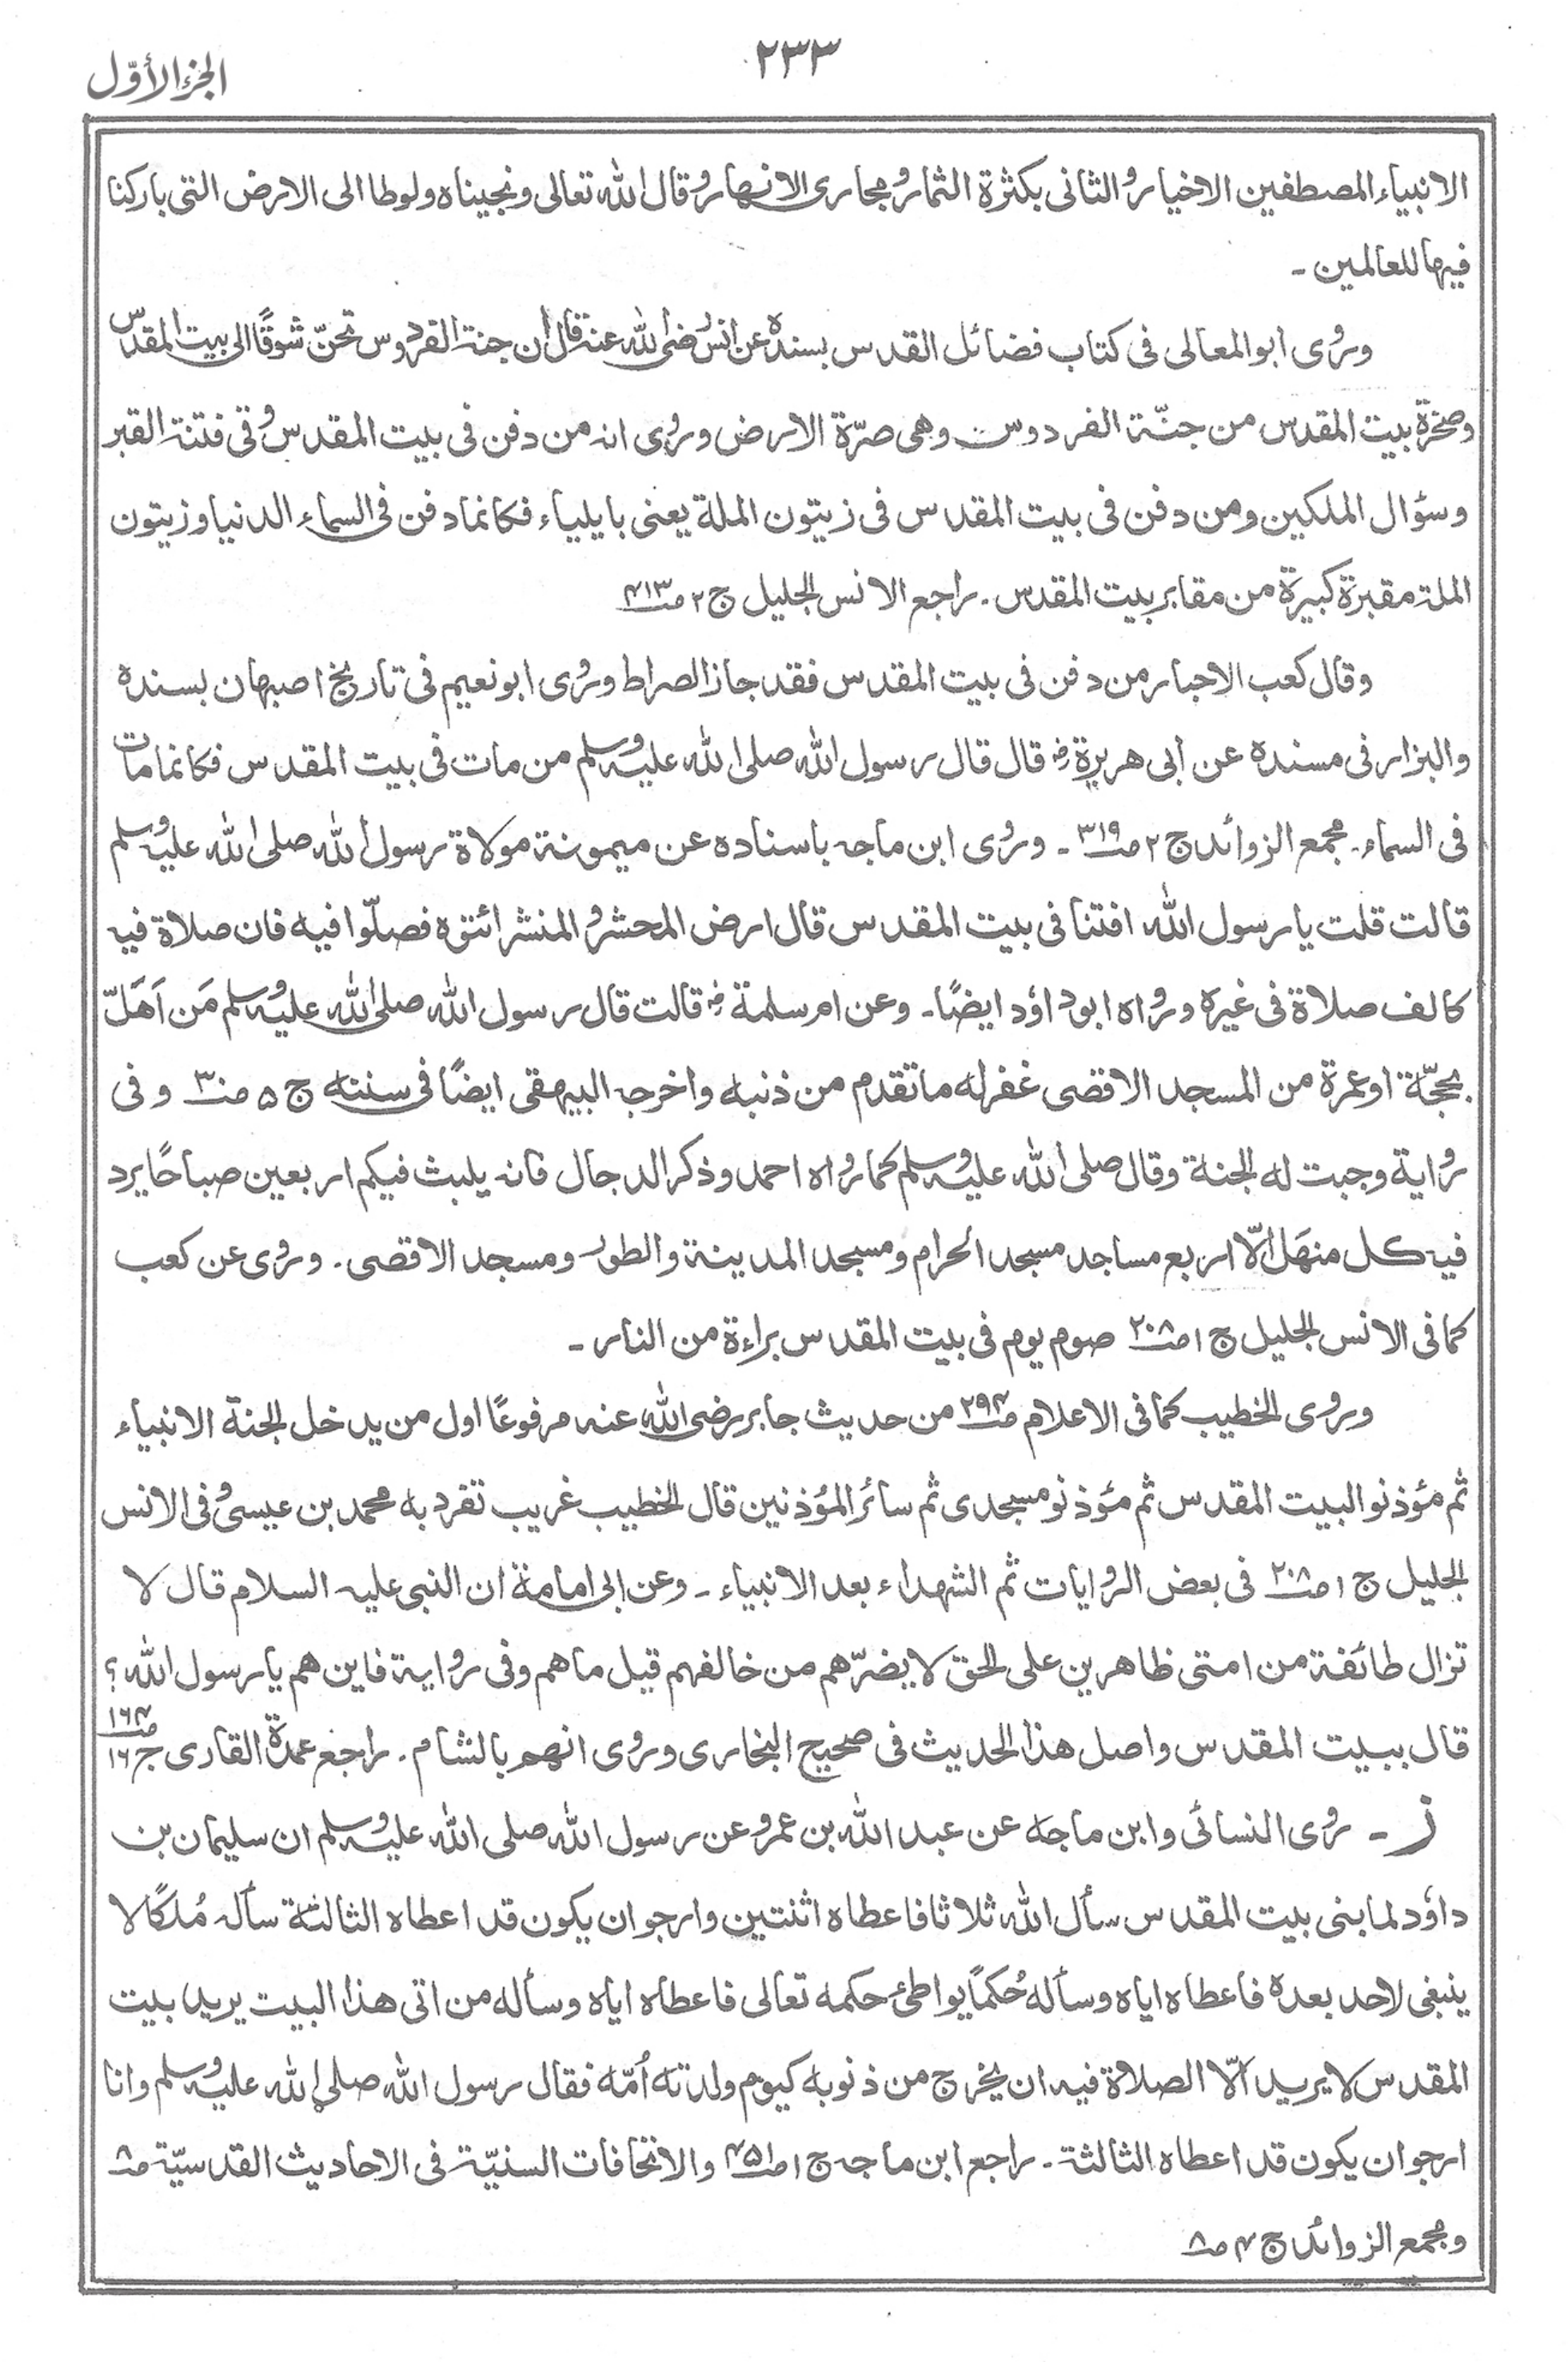 ٢٣٣
الجزء الأوّل
الانبياء المصطفين الاخيار والثانى بكثرة الثمار ومجارى الانهار وقال الله تعالى ونجيناه ولوطا الى الارض التى باركنا
فيها للعالمين ـ
وروى ابوالمعالى فى كتاب فضائل القدس بسنده عن انس رضى الله عنه قال ان جنة الفردوس تحنّ شوقًا الى بيت المقدس
وصخرة بيت المقدس من جنّة الفردوس وهى صرّة الارض وروى انه من دفن فى بيت المقدس وقى فتنة القبر
وسؤال الملكين ومن دفن فى بيت المقدس فى زيتون الملة يعنى بايلياء فكانما دفن فى السماء الدنيا وزيتون
الملة مقبرة كبيرة من مقابر بيت المقدس ـ راجع الانس الجليل ج ٢ صـ ٤١٣
وقال كعب الاحبار من دفن فى بيت المقدس فقد جاز الصراط وروى ابونعيم فى تاريخ اصبهان بسنده
والبزار فى مسنده عن أبى هريرة رض قال قال رسول الله صلى الله عليه وسلم من مات فى بيت المقدس فكانما مات
فى السماء ـ مجمع الزوائد ج ٢ صـ ٣١٩ ـ وروى ابن ماجه باسناده عن ميمونة مولاة رسول الله صلى الله عليه وسلم
قالت قلت يا رسول الله افتنا فى بيت المقدس قال ارض المحشر والمنشر ائتوه فصلّوا فيه فان صلاة فيه
كالف صلاة فى غيره ورواه ابوداؤد ايضًا ـ وعن ام سلمة رض قالت قال رسول الله صلى الله عليه وسلم مَن اَهَلّ
بحجّة اوعمرة من المسجد الاقصى غفرله ماتقدم من ذنبه واخرجه البيهقى ايضًا فى سننه ج ٥ صـ ٣٠ وفى
رواية وجبت له الجنة وقال صلى الله عليه وسلم كما رواه احمد وذكر الدجال فانه يلبث فيكم اربعين صباحًا يرد
فيه كل منهَل الّا اربع مساجد مسجد الحرام ومسجد المدينة والطور ومسجد الاقصى ـ وروى عن كعب
كما فى الانس الجليل ج ١ صـ ٢٠٨ صوم يوم فى بيت المقدس براءة من النار ـ
وروى الخطيب كما فى الاعلام صـ ٢٩٤ من حديث جابر رضى الله عنه مرفوعًا اول من يدخل الجنة الانبياء
ثم مؤذنو البيت المقدس ثم مؤذنو مسجدى ثم سائر المؤذنين قال الخطيب غريب تفرد به محمد بن عيسى وفى الانس
الجليل ج ١ صـ ٢٠٨ فى بعض الروايات ثم الشهداء بعد الانبياء ـ وعن ابى امامة ان النبى عليه السلام قال لا
تزال طائفة من امتى ظاهرين على الحق لايضرّهم من خالفهم قيل ماهم وفى رواية فاين هم يا رسول الله؟
قال ببيت المقدس واصل هذا الحديث فى صحيح البخارى وروى انهم بالشام ـ راجع عمدة القارى ج ١٦ صـ ١٦٤
ز ـ روى النسائى وابن ماجه عن عبد الله بن عمرو عن رسول الله صلى الله عليه وسلم ان سليمان بن
داؤد لما بنى بيت المقدس سأل الله ثلاثا فاعطاه اثنتين وارجو ان يكون قد اعطاه الثالثة سأله مُلكًا لا
ينبغى لاحد بعده فاعطاه اياه وسأله حُكمًا يواطئ حكمه تعالى فاعطاه اياه وسأله من اتى هذا البيت يريد بيت
المقدس لايريد الّا الصلاة فيه ان يخرج من ذنوبه كيوم ولدته أمّه فقال رسول الله صلى الله عليه وسلم وانا
ارجو ان يكون قد اعطاه الثالثة ـ راجع ابن ماجه ج ١ صـ ٤٥١ والاتحافات السنيّة فى الاحاديث القدسيّة صـ ٨
ومجمع الزوائد ج ٤ صـ ٨